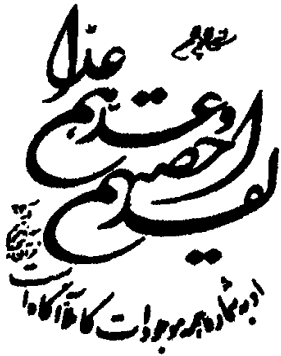 لقد احصیهم
وعدّهم عدّا
او به شماره همه موجودات کاملا آگاه است